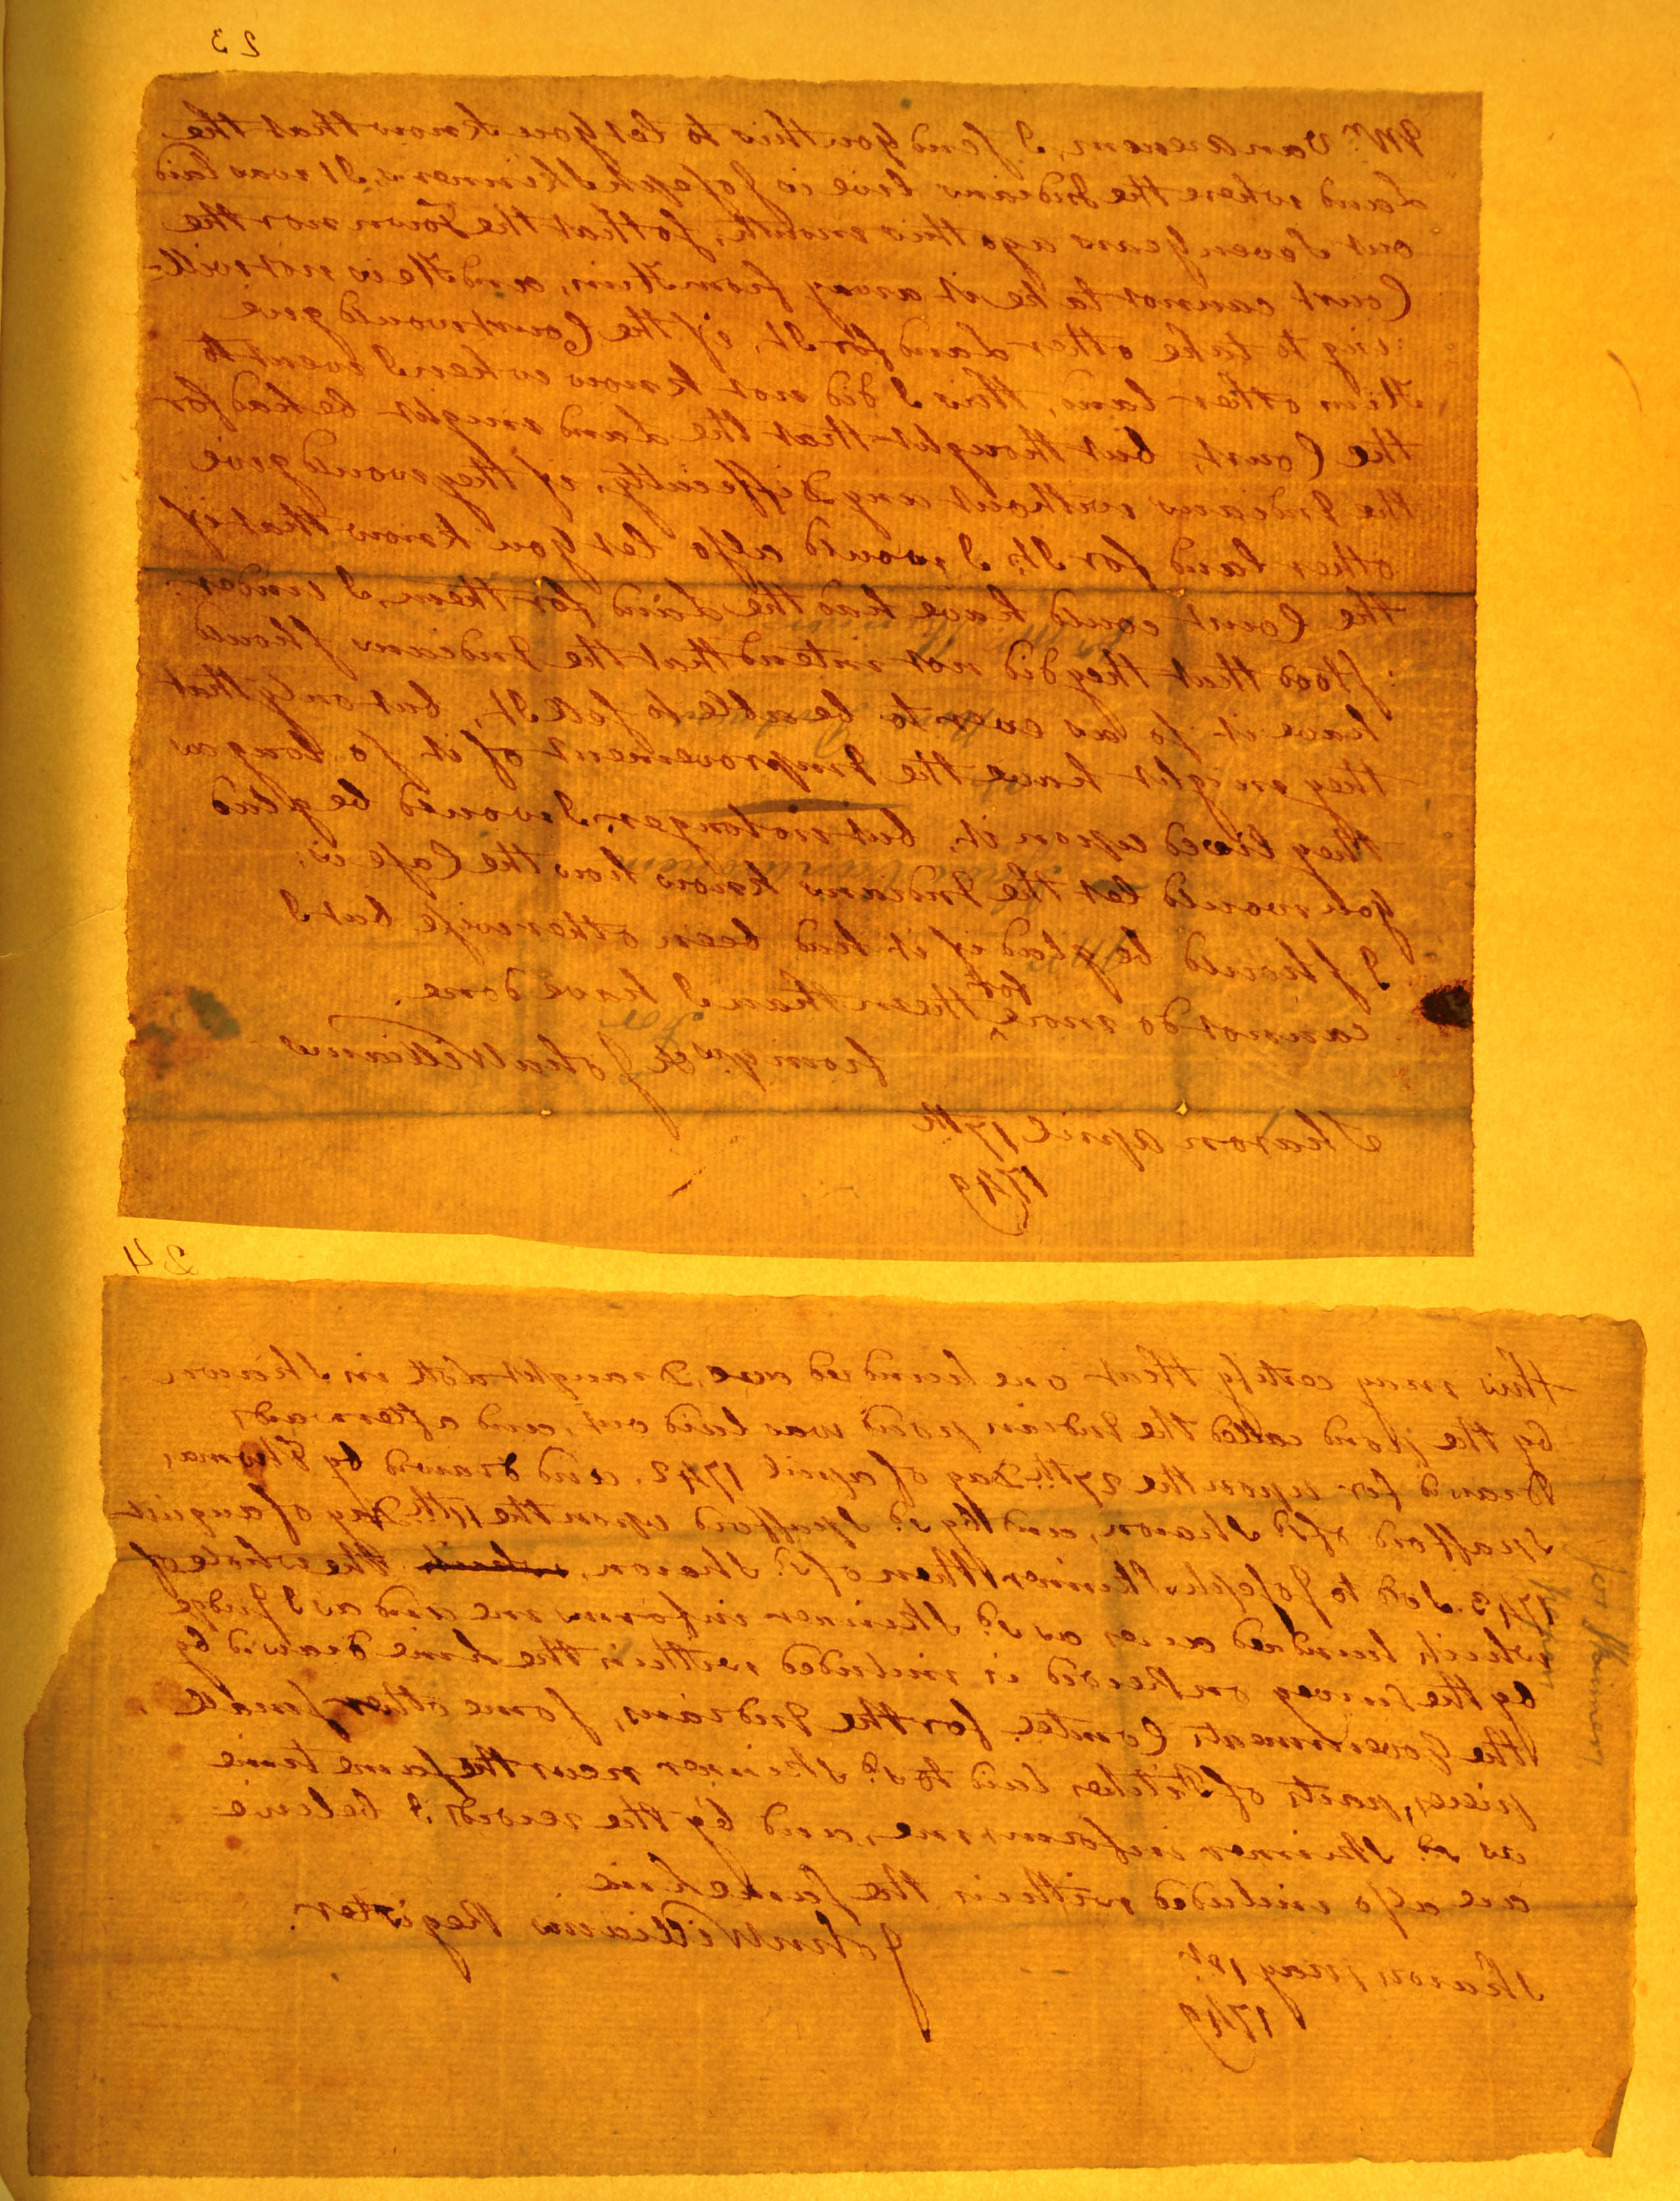 23
Mr. Vanarenem, I send you this to let you know that the
Land where the Indians live is Joseph Skinners, It was laid
out Seven years ago this month, so that the Town nor the
Court cannot take it away from Him, and He is not will-
:ing to take other Land for It, if the Court would give
Him other land, this I did not know when I went to
the Court, but thought that the Land might be had for
the Indians without any Difficulty, if they would give
other land for It; I would also let you know that if
the Court could have had the Land for them, I under-
:stood that they did not intend that the Indians should
have it so as ever to be able to sell It, but only that
they might have the Improvement of it so long as
they lived upon it, but no longer, I would be glad
you would let the Indians know how the Case is;
I should be glad if it had been otherwise, but I
cannot do more for them than I have done.
from yrs. &c John Williams
Sharon april 17th.
1749
24
this may certify that one hundred acre Draught Lott in Sharon
by the pond called the Indian pond was laid out, and afterwards
Draw'd for upon the 27th. Day of april 1742. and draw'd by Thomas
Spafford of sd. Sharon, and by sd. Spafford upon the 17th. Day of august
1743. Sold to Joseph Skinner then of sd. Sharon, the whole of
which hundred acres as sd. Skinner informs me and as I Judge
by the Survey on Record is included within the Line draw'd by
the Governments Comtee. for the Indians, some other small
pieces, parts of Pitches laid to sd. Skinner near the same time
as sd. Skinner informs me, and by the records I believe
are also included within the same Line
John Williams Register.
Sharon may 1st.
1749
Jos Skinner